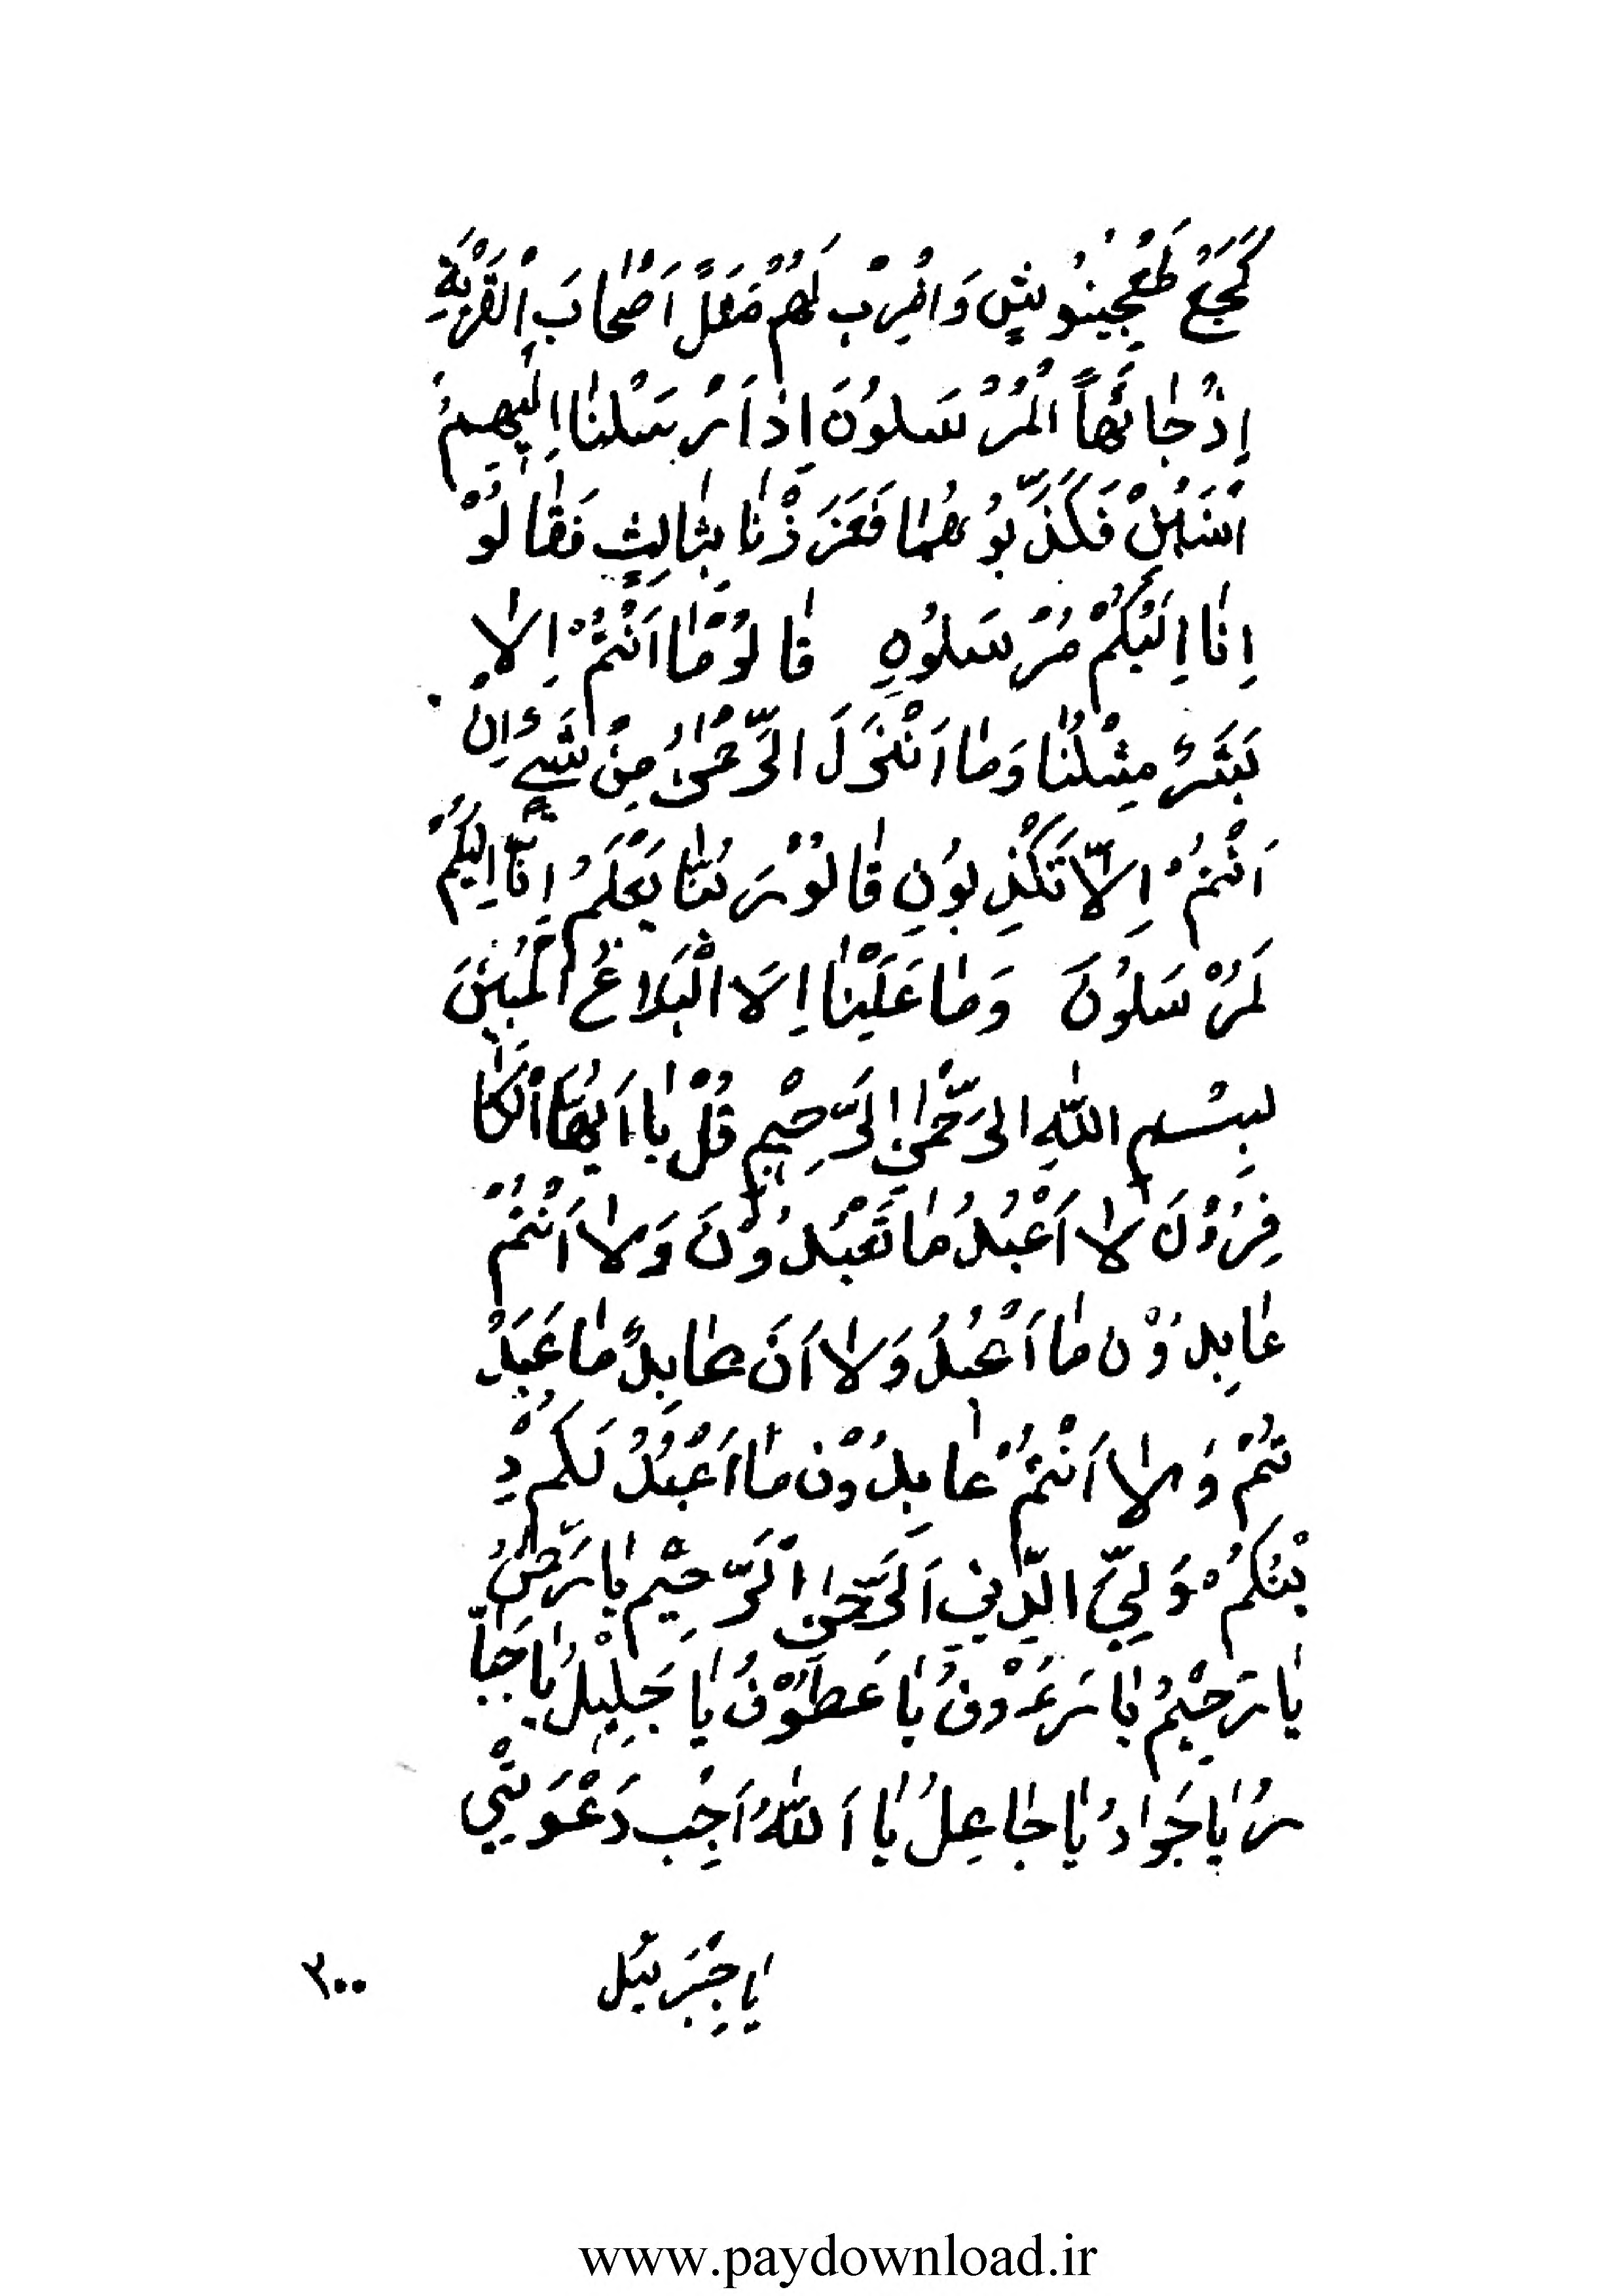 كَجَعْ طَعْجِينُوشٍ وَاضْرِبْ لَهُمْ مَثَلً اَصْحٰابَ الْقَرْيَةِ
اِذْ جٰائَهٰاً الْمُرْسَلوُنَ اِذٰ اَرْسَلْنٰا اِلَيْهِمُ
اثْنَيْنِ فَكَذَّبُوهُمٰا فَعَزَزْنٰا بِثٰالِثٍ فَقٰالُوْ
اِنٰا اِلَيْكُمْ مُرْسَلوُهِ قٰالوُمٰا اَنْتُمْ اِلاٰ
بَشَرُ مِثْلُنٰا وَمٰا اَنْزَلَ الرَّحْمٰنُ مِنْ شَيْءٍ اِنْ
اَنْتُمْ اِلاّٰ تَكْذِبوُنِ قٰالوُ رَبُنّٰا يَعْلَمُ اِنّٰا اِلَيكُمْ
لَمُرْسَلوُنَ وَمٰا عَلَيْنٰا اِلَا الْبَلَاغُ الْمُبِينَ
بِسْمِ اللّٰهِ الرَّحْمٰنِ الرَّحِيْمِ قُلْ يٰا اَيُّهَا الْكٰا
فِرُوْنَ لاٰ اَعْبُدُ مٰا تَعْبُدُوْنَ وَلاٰ اَنْتُمْ
عٰابِدُوْن مٰا اَعْبُدُ وَلاٰ اَنَ عٰابِدٌ مٰا عَبَدْ
تُمْ وَلاٰ اَنْتُمْ عٰابِدُوْن مٰا اَعْبُدُ لَكُمْ دِ
يْنُكُمْ وَلِيَّ الدّٖينِ اَلرَّحْمٰنِ الرَّحِيْمِ يٰا رَحْمٰنُ
يٰا رَحِيْمُ يٰا رَعُوْفُ يٰا عَطوُفُ يٰا جَلِيْلُ يٰا جَبّٰا
رُ يٰا جَوٰادُ يٰا جٰاعِلُ يٰا اَللّٰهُ اَجِبْ دَعْوَتْي
يٰا جِبْرَئيل
٢٠٠
www.paydownload.ir